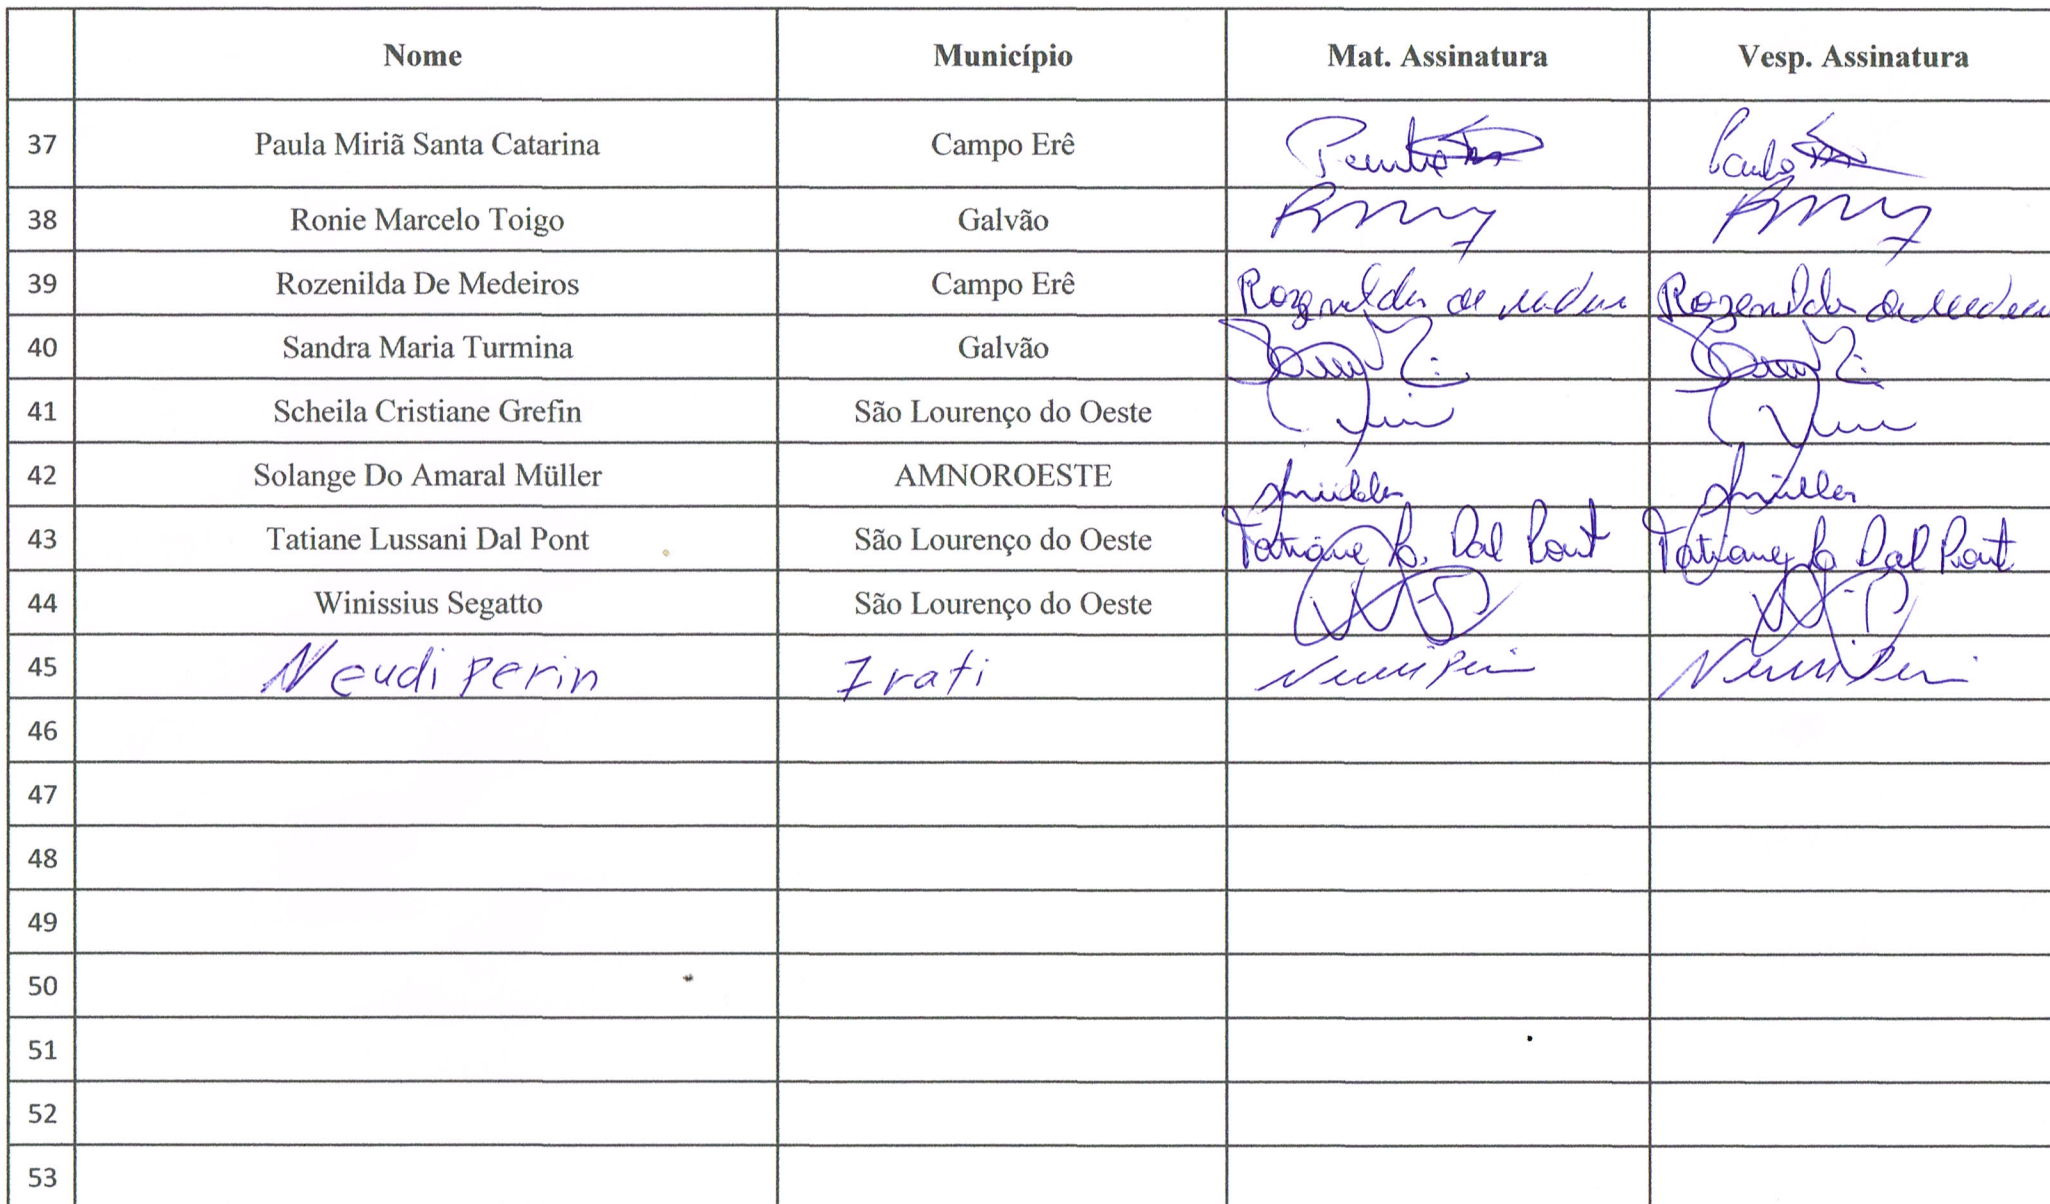 Nome Município Mat. Assinatura Vesp. Assinatura
37 Paula Miriã Santa Catarina Campo Erê
38 Ronie Marcelo Toigo Galvão
39 Rozenilda De Medeiros Campo Erê Rozenilda de Rozenilda de
40 Sandra Maria Turmina Galvão
41 Scheila Cristiane Grefin São Lourenço do Oeste
42 Solange Do Amaral Müller AMNOROESTE
43 Tatiane Lussani Dal Pont São Lourenço do Oeste Tatiane L. Dal Pont Tatiane L. Dal Pont
44 Winissius Segatto São Lourenço do Oeste
45 Neudi Perin Irati
46
47
48
49
50
51
52
53